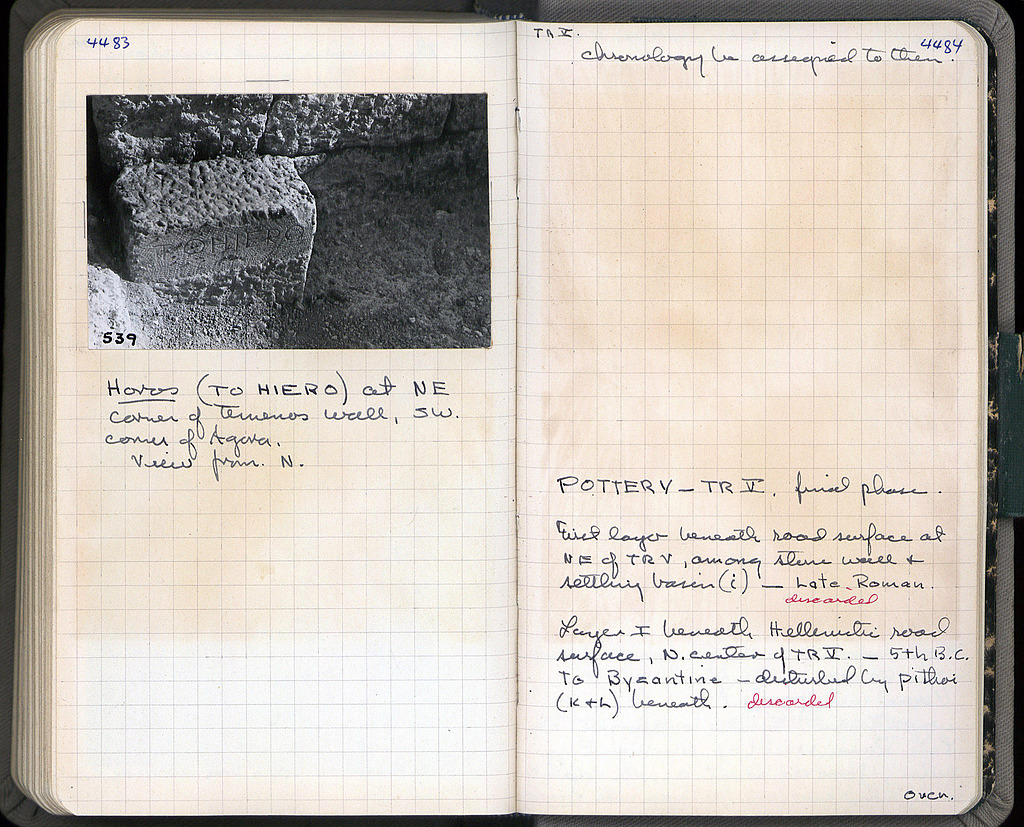 4483
TOHIERO
539
Horos (TO HIERO) at NE
corner of temenos wall, SW.
corner of Agora.
View from N.
TR V.
4484
chronology be assigned to them.
POTTERY – TR V. final phase.
First layer beneath road surface at
NE of TR V, among stone wall +
settling basin (i) – Late Roman.
discarded
Layer I beneath Hellenistic road
surface, N. center of TR V. – 5th B.C.
to Byzantine – disturbed by pithoi
(K+L) beneath. discarded
over.